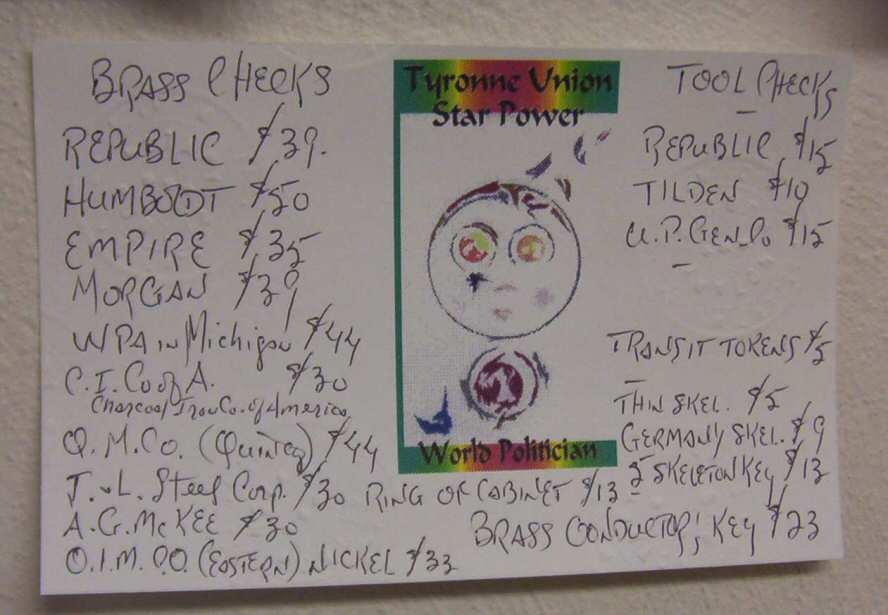 BRASS CHECKS
REPUBLIC $39.
HUMBOLDT $50
EMPIRE $35
MORGAN $39
WPA in Michigan $44
C.I. Co of A. $30
Charcoal Iron Co. of America
Q.M.Co. (Quincy) $44
J.&L. Steel Corp. $30
A.G. McKEE $30
O.I.M.CO. (EASTERN) NICKEL $33
Tyronne Union
Star Power
World Politician
TOOL CHECKS
REPUBLIC $15
TILDEN $19
U.P. Gen. Co $15
TRANSIT TOKENS $5
THIN SKEL. $5
GERMANY SKEL. $9
5 SKELETON KEY $13
RING OF CABINET $13
BRASS CONDUCTOR; KEY $23